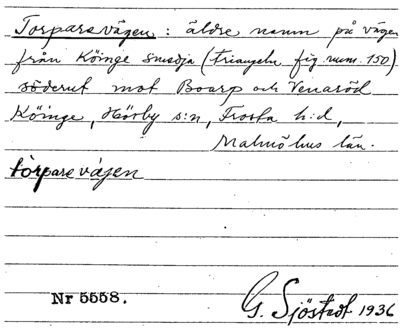 Torparevägen : äldre namn på vägen
från Köinge smedja (triangeln fig. num. 150)
söderut mot Boarp och Venaröd
Köinge, Hörby s:n, Frosta h:d,
Malmöhus län.
tòrparevä́gen
Nr 5558.
G. Sjöstedt 1936